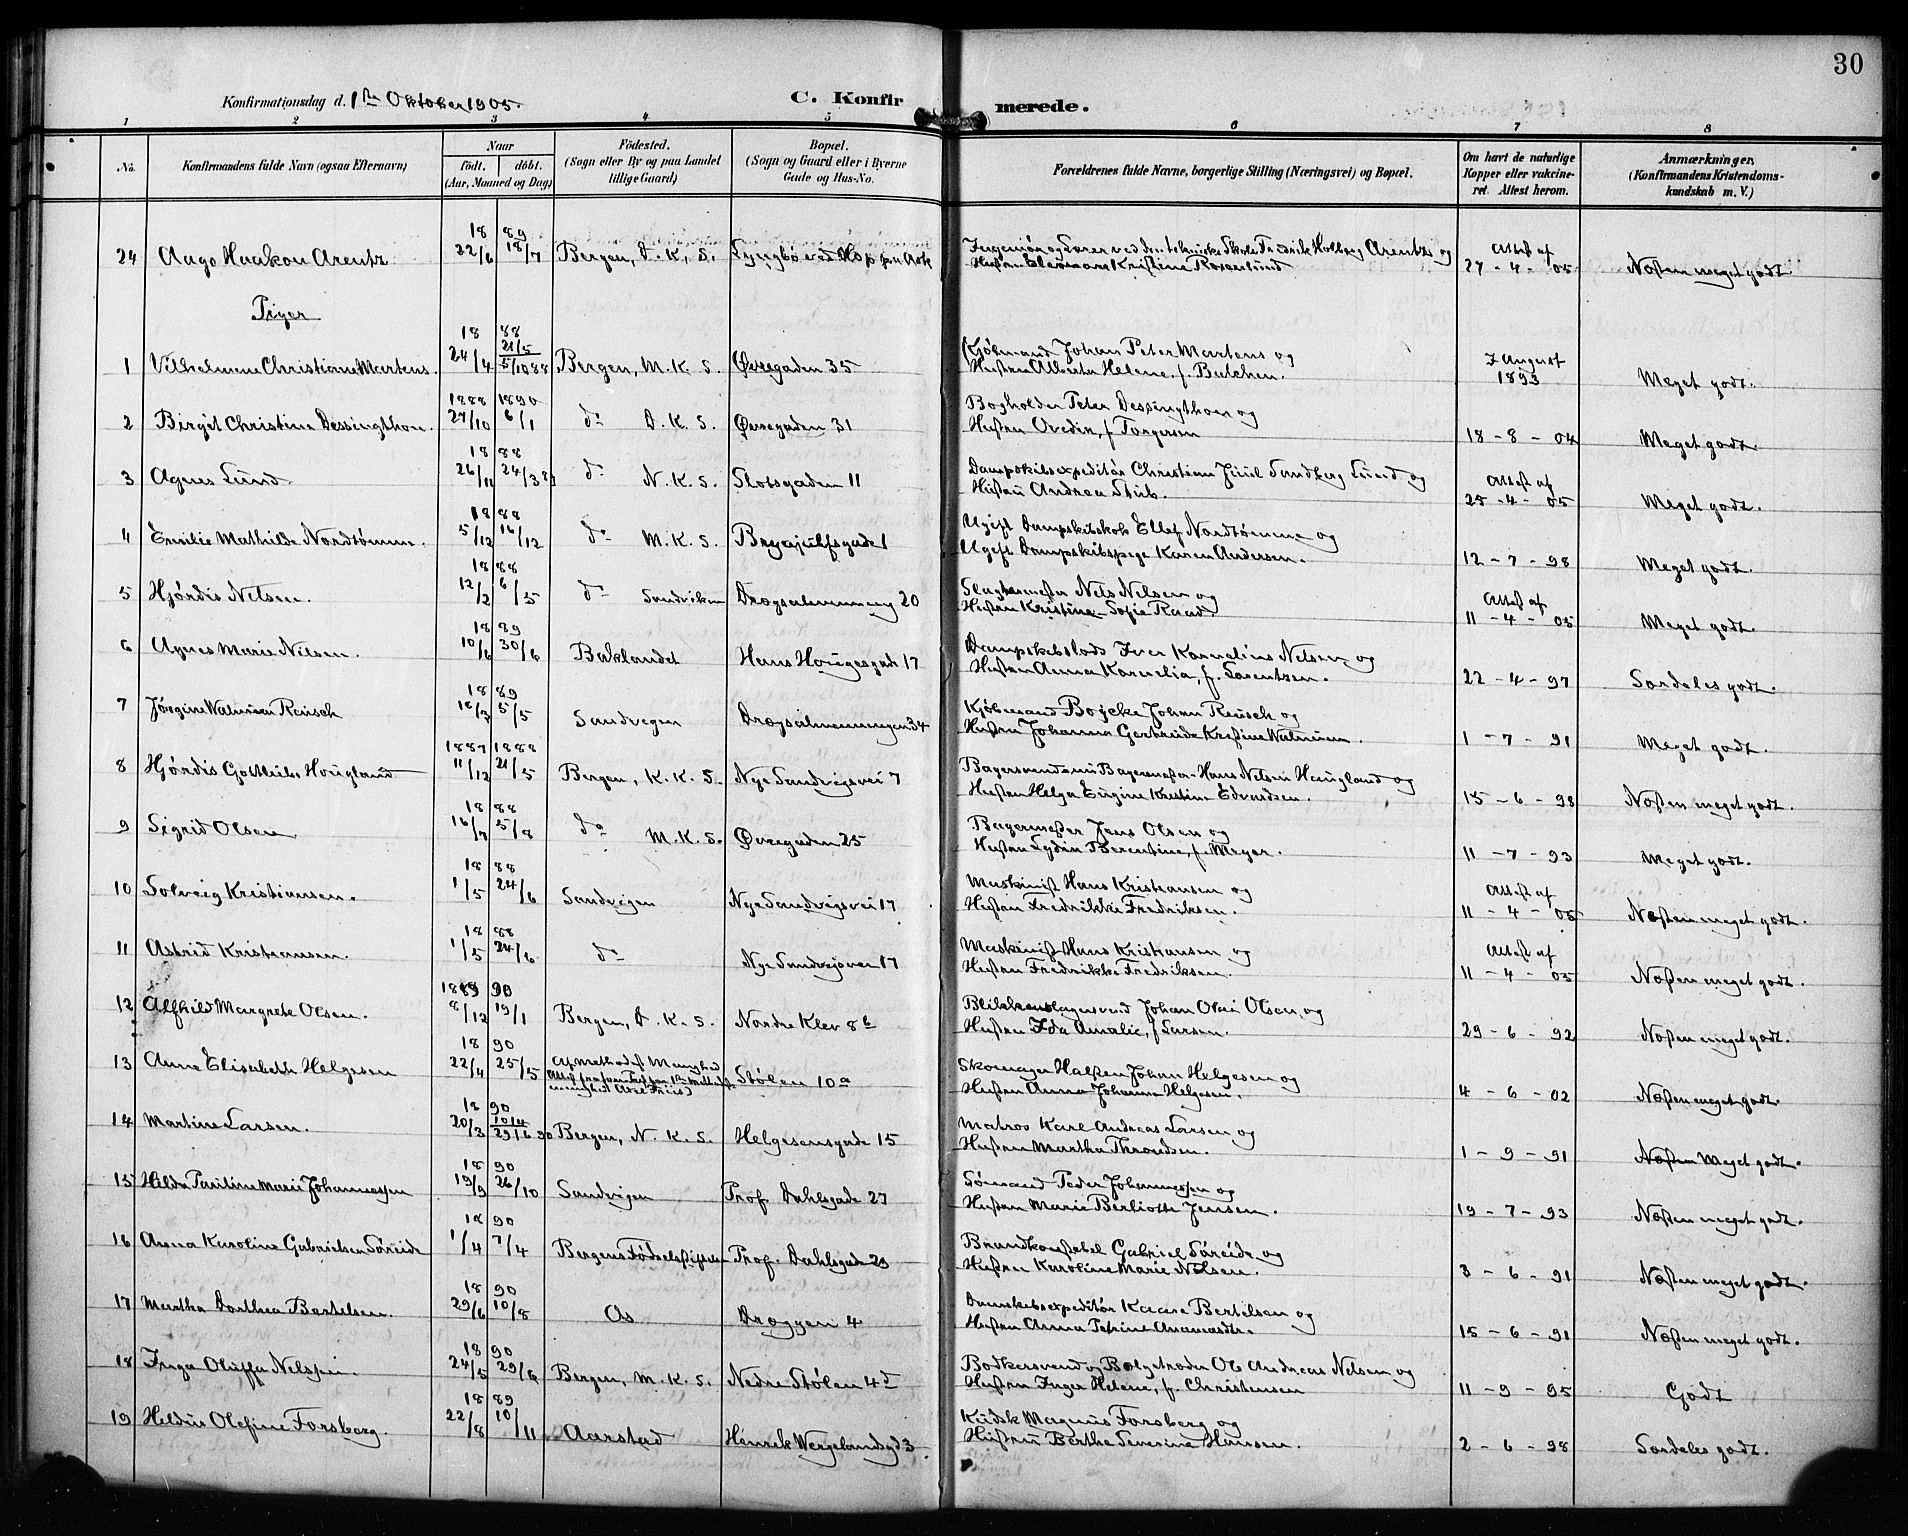 30
Konfirmationsdag d. 1ste Oktober 1905.
C. Konfirmerede.
1 2 3 4 5 6 7 8
No. Konfirmandens fulde Navn (ogsaa Efternavn) Naar födt. döbt. (Aar, Maaned og Dag) Födested. (Sogn eller By og paa Landet tillige Gaard) Bopæl. (Sogn og Gaard eller i Byerne Gade og Hus-No. Forældrenes fulde Navne, borgerlige Stilling (Næringsvei) og Bopæl. Om havt de naturlige Kopper eller vakcineret. Attest herom. Anmærkninger, (Konfirmandens Kristendomskundskab m. V.)
24 Aage Haakon Arentz 18 89 22/6 18/7 Bergen, D. K. S. Ingeniør og Lærer ved den tekniske Skole Fredrik Holberg Arentz og
Hustru Kristine Attest af 27-4-05 Næsten meget godt.
Piger
1 Vilhelmine Christiane Martens. 18 88 24/4 21/5 5/10 88 Bergen, M. K. S. Øvregaden 35 Kjøbmand Johan Peter Martens og
Hustru Alberta Helene, f. Butchen. 7 August 1893 Meget godt.
2 Birgit Christine Dessingthon. 1888 1890 27/10 6/1 do D. K. S. Øvregaden 31 Bogholder Peter Dessingthon og
Hustru f. Torgersen 18-8-04 Meget godt.
3 Agnes Lund. 18 88 26/11 24/3 89 do N. K. S. Slotsgaden 11 Dampskibsexpeditör Christian Juul Sundberg Lund og
Hustru Andrea Stub. Attest af 25-4-05 Meget godt.
4 Emilie Mathilde Nordtømme. 18 88 5/12 16/12 do M. K. S. Brynjulfsgade 1 Ugift Dampskibskok Ellef Nordtømme og
Ugift Dampskibspige Karen Andersen. 12-7-98 Meget godt.
5 Hjördis Nilsen. 18 88 12/2 6/5 do Sandviken Drægsalmenning 20 Slagtermester Nils Nilsen og
Hustru Kristine Sofie Raad. Attest af 11-4-05 Meget godt.
6 Agnes Marie Nilsen. 18 89 10/6 30/6 Baklandet Hans Hougesgade 17 Dampskibslods Iver Kornelius Nilsen og
Hustru Anna Kornelia, f. Lorentzen. 22-4-97 Særdeles godt.
7 Jörgine Walmion Reusch 18 89 16/3 5/5 Sandvigen Drægsalmenningen 34 Kjøbmand Boycke Johan Reusch og
Hustru Johanna Gertruide Kristine Walmion. 1-7-91 Meget godt.
8 Hjördis Gottliebs Hougland 1887 1888 11/12 21/5 Bergen, K. K. S. Nye Sandvigsvei 7 Bagersvend Hans Nilsen Haugland og
Hustru Helga Eugine Kristine Edvardsen. 15-6-98 Næsten meget godt.
9 Sigrid Olsen 18 88 16/7 5/8 do M. K. S. Øvregaden 25 Bagermester Jens Olsen og
Hustru Lydia Berentine, f. Meyer. 11-7-93 Meget godt.
10 Solveig Kristiansen. 18 88 1/5 24/6 Sandvigen Nye Sandvigsvei 17 Maskinist Hans Kristiansen og
Hustru Fredrikke Fredriksen. Attest af 11-4-05 Næsten meget godt.
11 Astrid Kristiansen. 18 88 1/5 24/6 do Nye Sandvigsvei 17 Maskinist Hans Kristiansen og
Hustru Fredrikke Fredriksen. Attest af 11-4-05 Næsten meget godt.
12 Alfhild Margrete Olsen. 1889 90 8/12 19/1 Bergen, D. K. S. Nordre Klev 8b Blikkenslagersvend Johan Olai Olsen og
Hustru Ida Amalie, f. Larsen. 29-6-92 Næsten meget godt.
13 Anne Elisabeth Helgesen 18 90 22/4 25/5 Af Methodist Menighed Stølen 10a Skomager Halfen Johan Helgesen og
Hustru Anna Johanna Helgesen. 4-6-02 Næsten meget godt.
14 Martine Larsen. 18 90 20/3 10/4 29/6 90 Bergen, N. K. S. Helgesensgade 15 Matros Karl Andreas Larsen og
Hustru Martha Throndsen. 1-9-91 Næsten Meget godt.
15 Hilda Pauline Marie Johannessen 18 90 19/9 26/10 Sandvigen Prof. Dahlsgade 27 Sømand Peder Johannessen og
Hustru Marie Berliotte Jensen. 19-7-93 Næsten meget godt.
16 Anna Karoline Gabrielsen Söreide 18 90 1/4 7/4 Bergens Fødselsstiftelse Prof. Dahlsgade 23 Brandkonstabel Gabriel Söreide og
Hustru Karoline Marie Nilsen. 3-6-91 Næsten meget godt.
17 Martha Dorthea Bertilsen. 18 90 29/6 10/8 Os Dræggen 4 Damskibsexpeditör Kaare Bertilsen og
Hustru Anna Petrine 15-6-91 Næsten meget godt.
18 Inga Oluffa Nilssen. 18 90 24/5 29/6 Bergen, M. K. S. Nedre Stølen 4d Bødkersvend og Ole Andreas Nilsen og
Hustru Inger Helene, f. Christensen 11-9-95 Godt
19 Heldur Olefine Forsberg. 18 89 22/8 10/11 Aarstad Henrik Wergelandsgd 3 Kudsk Magnus Forsberg og
Hustru Berthe Severine Hansen. 2-6-98 Særdeles godt.